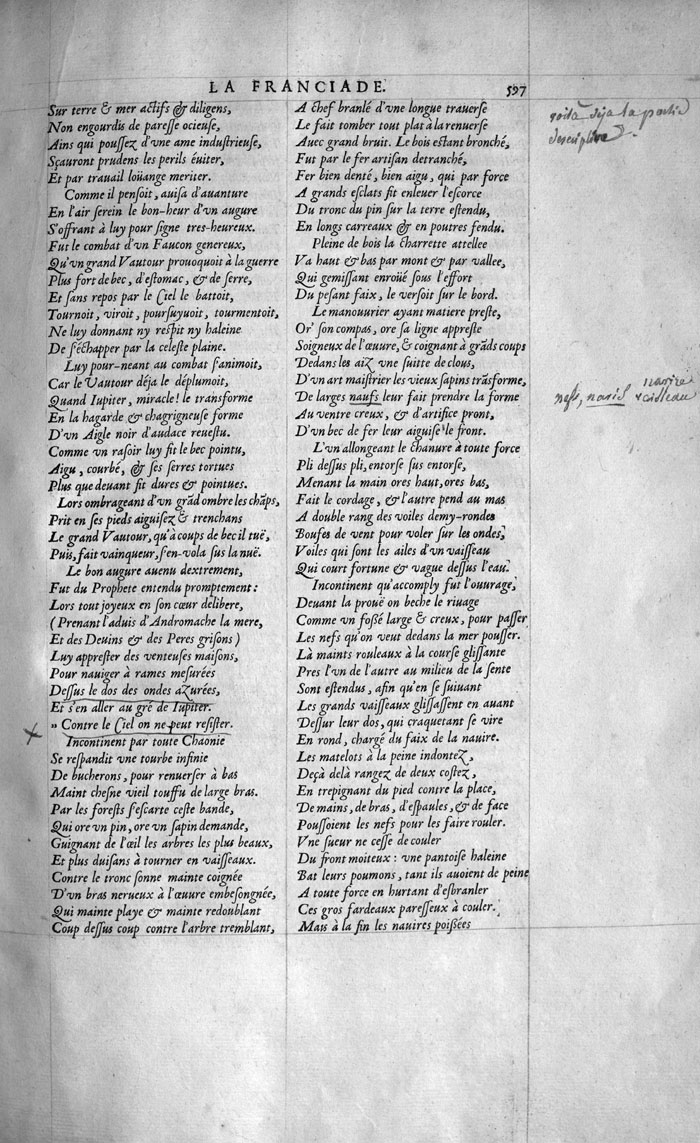 LA FRANCIADE. 597
Sur terre & mer actifs & diligens,
Non engourdis de paresse ocieuse,
Ains qui poussez d'vne ame industrieuse,
Sçauront prudens les perils éuiter,
Et par trauail loüange meriter.
Comme il pensoit, auisa d'auanture
En l'air serein le bon-heur d'vn augure
S'offrant à luy pour signe tres-heureux.
Fut le combat d'vn Faucon genereux,
Qu'vn grand Vautour prouoquoit à la guerre
Plus fort de bec, d'estomac, & de serre,
Et sans repos par le Ciel le battoit,
Tournoit, viroit, poursuyuoit, tourmentoit,
Ne luy donnant ny respit ny haleine
De s'échapper par la celeste plaine.
Luy pour-neant au combat s'animoit,
Car le Vautour déja le déplumoit,
Quand Iupiter, miracle! le transforme
En la hagarde & chagrigneuse forme
D'vn Aigle noir d'audace reuestu.
Comme vn rasoir luy fit le bec pointu,
Aigu, courbé, & ses serres tortues
Plus que deuant fit dures & pointues.
Lors ombrageant d'vn grãd ombre les chãps,
Prit en ses pieds aiguisez & trenchans
Le grand Vautour, qu'à coups de bec il tuë,
Puis, fait vainqueur, s'en-vola sus la nuë.
Le bon augure auenu dextrement,
Fut du Prophete entendu promptement:
Lors tout joyeux en son cœur delibere,
(Prenant l'aduis d'Andromache la mere,
Et des Deuins & des Peres grisons)
Luy apprester des venteuses maisons,
Pour nauiger à rames mesurées
Dessus le dos des ondes azurées,
Et s'en aller au gré de Iupiter.
" Contre le Ciel on ne peut resister.
Incontinent par toute Chaonie
Se respandit vne tourbe infinie
De bucherons, pour renuerser à bas
Maint chesne vieil touffu de large bras.
Par les forests s'escarte ceste bande,
Qui ore vn pin, ore vn sapin demande,
Guignant de l'œil les arbres les plus beaux,
Et plus duisans à tourner en vaisseaux.
Contre le tronc sonne mainte coignée
D'vn bras nerueux à l'œuure embesongnée,
Qui mainte playe & mainte redoublant
Coup dessus coup contre l'arbre tremblant,
A chef branlé d'vne longue trauerse
Le fait tomber tout plat à la renuerse
Auec grand bruit. Le bois estant bronché,
Fut par le fer artisan detranché,
Fer bien denté, bien aigu, qui par force
A grands esclats fit enleuer l'escorce
Du tronc du pin sur la terre estendu,
En longs carreaux & en poutres fendu.
Pleine de bois la charrette attellee
Va haut & bas par mont & par vallee,
Qui gemissant enroüé sous l'effort
Du pesant faix, le versoit sur le bord.
Le manouurier ayant matiere preste,
Or' son compas, ore sa ligne appreste
Soigneux de l'œuure, & coignant à grãds coups
Dedans les aiz vne suitte de clous,
D'vn art maistrier les vieux sapins trãsforme,
De larges naufs leur fait prendre la forme
Au ventre creux, & d'artifice pront,
D'vn bec de fer leur aiguise le front.
L'vn allongeant le chanure à toute force
Pli dessus pli, entorse sus entorse,
Menant la main ores haut, ores bas,
Fait le cordage, & l'autre pend au mas
A double rang des voiles demy-rondes
Boufes de vent pour voler sur les ondes,
Voiles qui sont les ailes d'vn vaisseau
Qui court fortune & vague dessus l'eau.
Incontinent qu'accomply fut l'ouurage,
Deuant la prouë on beche le riuage
Comme vn fossé large & creux, pour passer
Les nefs qu'on veut dedans la mer pousser.
Là maints rouleaux à la course glissante
Pres l'vn de l'autre au milieu de la sente
Sont estendus, afin qu'en se suiuant
Les grands vaisseaux glissassent en auant
Dessur leur dos, qui craquetant se vire
En rond, chargé du faix de la nauire.
Les matelots à la peine indontez,
Deçà delà rangez de deux costez,
En trepignant du pied contre la place,
De mains, de bras, d'espaules, & de face
Poussoient les nefs pour les faire rouler.
Vne sueur ne cesse de couler
Du front moiteux: vne pantoise haleine
Bat leurs poumons, tant ils auoient de peine
A toute force en hurtant d'esbranler
Ces gros fardeaux paresseux à couler.
Mais à la fin les nauires poissées
voilà déja la partie
descriptive.
navire
nefs, vaisseau